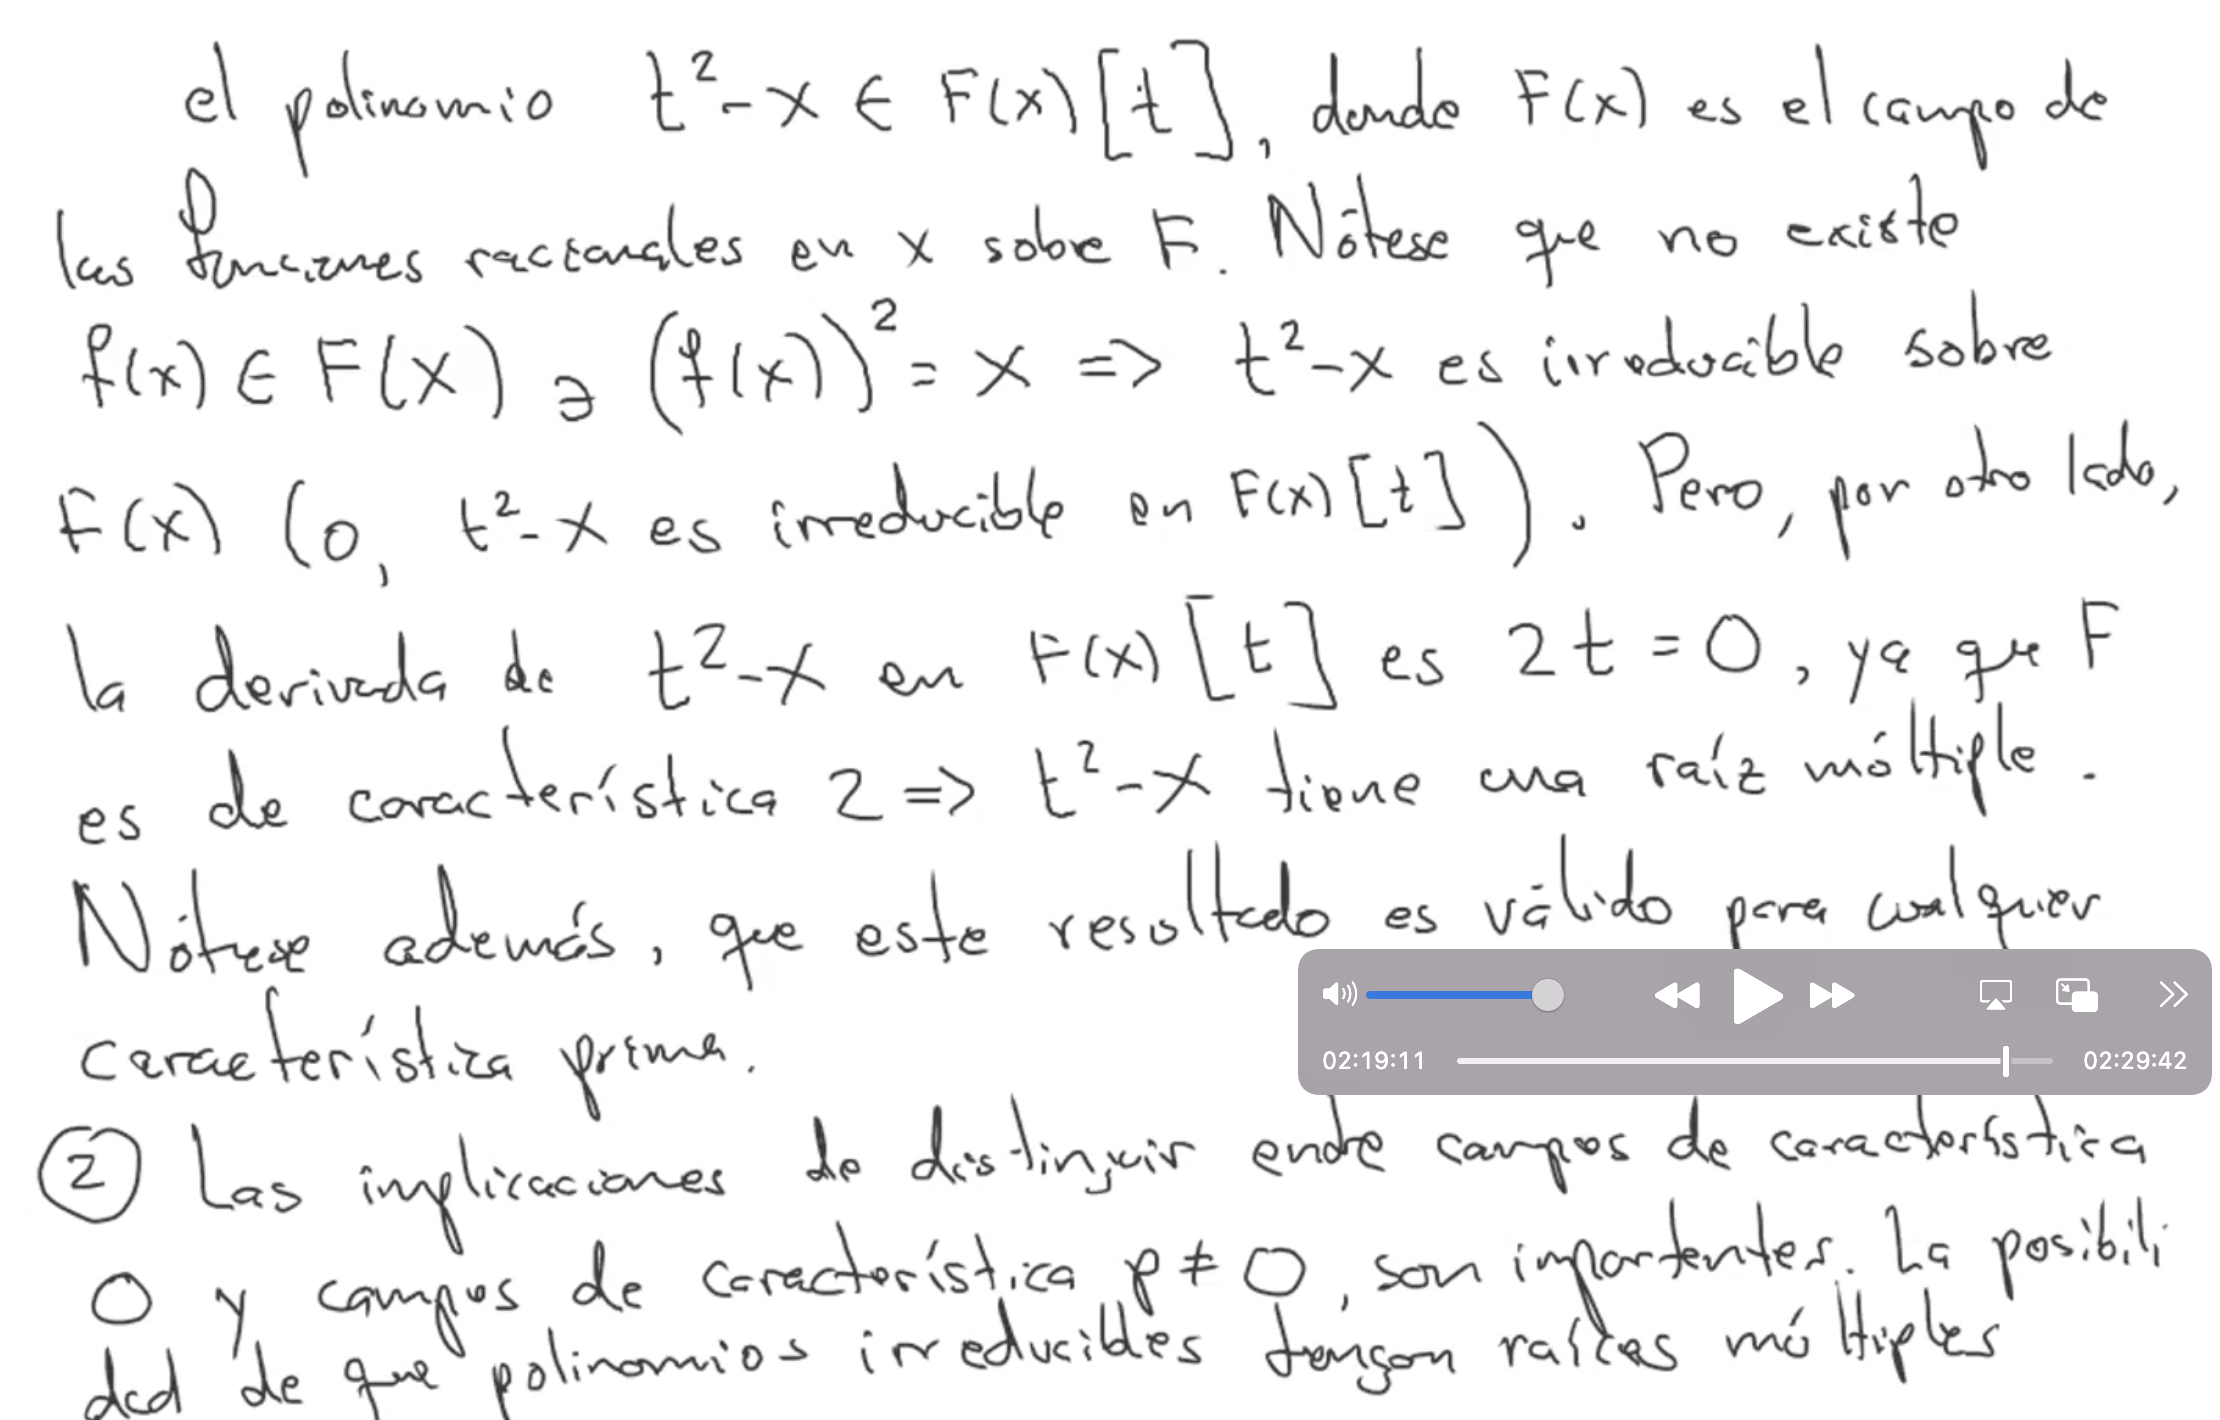 el polinomio t²-x ∈ F(x)[t], donde F(x) es el campo de
las funciones racionales en x sobre F. Nótese que no existe
f(x) ∈ F(x) ∋ (f(x))² = x => t²-x es irreducible sobre
F(x) (o, t²-x es irreducible en F(x)[t]). Pero, por otro lado,
la derivada de t²-x en F(x)[t] es 2t = 0, ya que F
es de característica 2 => t²-x tiene una raíz múltiple.
Nótese además, que este resultado es válido para cualquier
característica prima.
02:19:11 02:29:42
② Las implicaciones de distinguir entre campos de característica
0 y campos de característica p ≠ 0, son importantes. La posibili
dad de que polinomios irreducibles tengan raíces múltiples